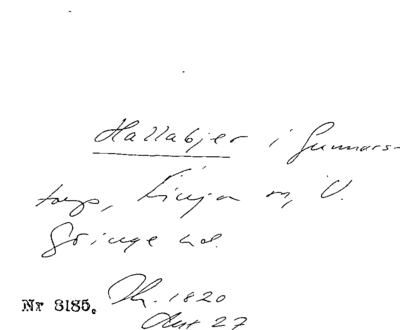 Hallabjer i Gunnars-
torp, Linja m, V.
Göinge hd.
Nr 3185. Th. 1820
Akt 27